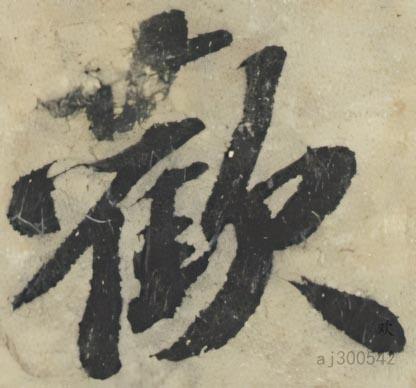 歡
欢
aj300542